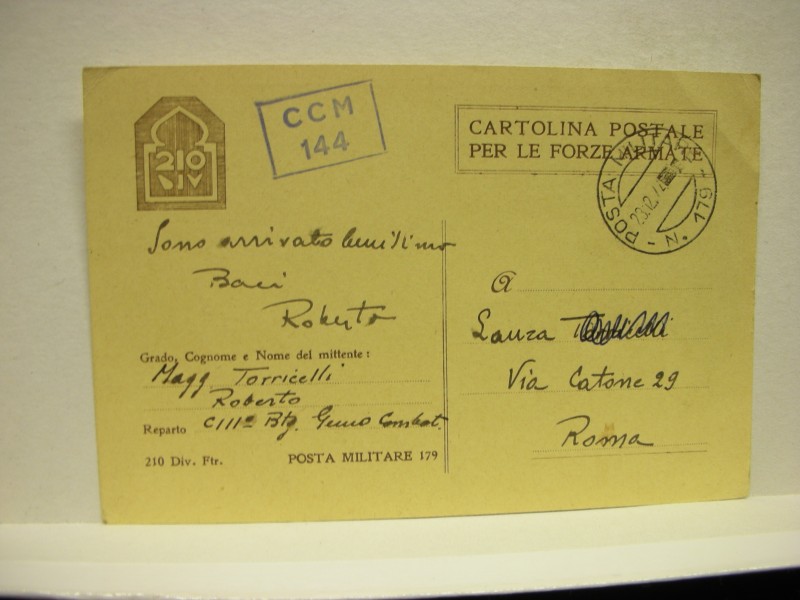 210
DIV
CCM
144
CARTOLINA POSTALE
PER LE FORZE ARMATE
POSTA MILITARE N. 179
Sono arrivato benissimo
Baci
Roberto
Grado, Cognome e Nome del mittente:
Magg Torricelli
Roberto
Reparto CIIIº Btg. Genio Combat.
210 Div. Ftr. POSTA MILITARE 179
A
Laura
Via Catone 29
Roma